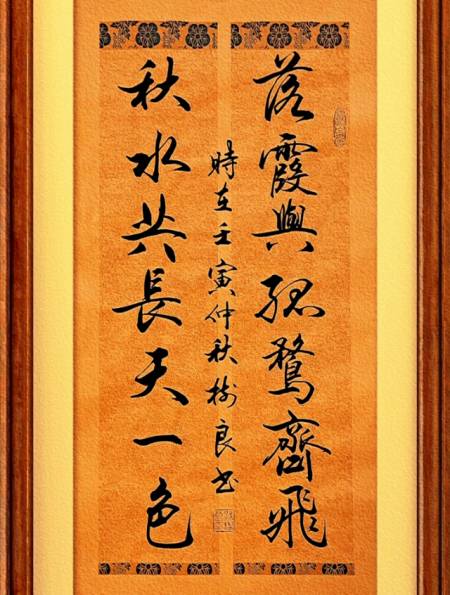 落霞與孤鶩齊飛
秋水共長天一色
時在壬寅仲秋樹良书